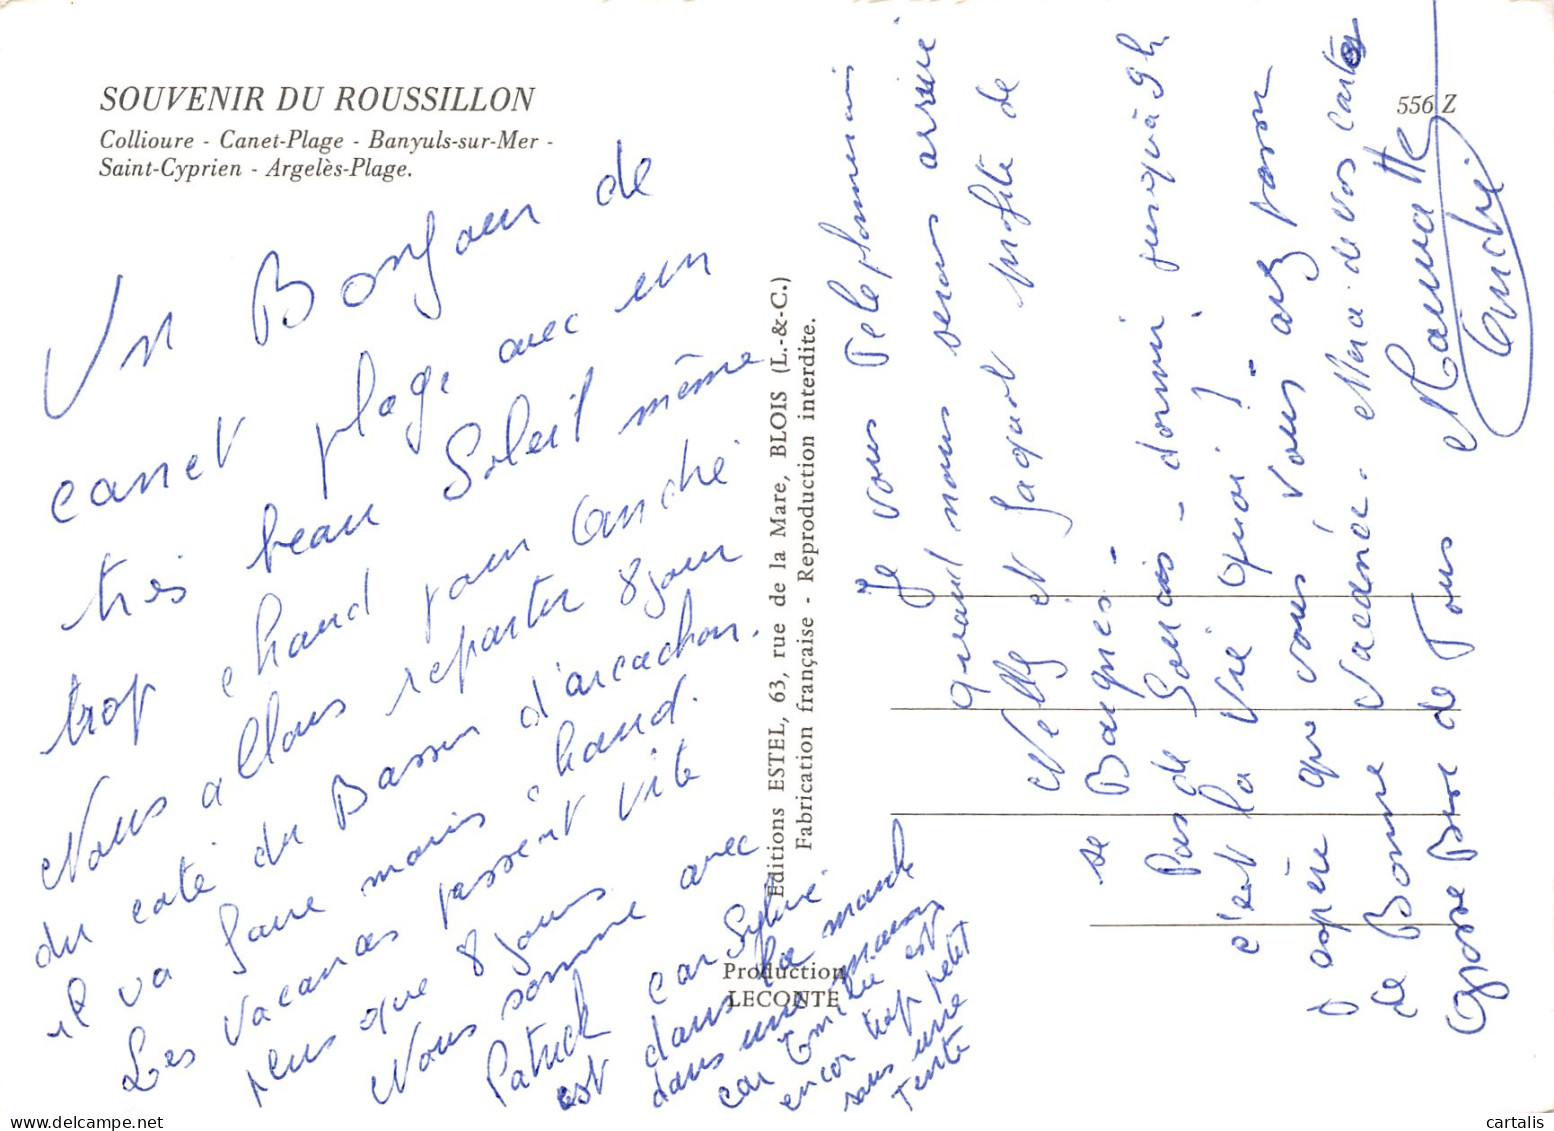 SOUVENIR DU ROUSSILLON
Collioure - Canet-Plage - Banyuls-sur-Mer -
Saint-Cyprien - Argelès-Plage.
556 Z
Un Bonjour de
canet plage avec un
très beau Soleil même
trop chaud pour André
Nous allons repartir 8 jour
du coté du Bassin d'arcachon.
il va faire moins chaud.
Les vacances passent vite
plus que 8 jours
Nous somme avec
Patrick car Sylvie
est dans la manche
dans une maison
car Emilie est
encor trop petit
sous une
Tente
Editions ESTEL, 63, rue de la Mare, BLOIS (L.-&-C.)
Fabrication française - Reproduction interdite.
Production
LECONTE
Je vous Telephonerais
quand nous serons arrivé
Nelly et Jaquot profite de
se Baigner -
Pas de Soucis - dormir jusqu'à 9h
c'est la Vie quoi! -
J'espère que vous, vous avez passer
de Bonne Vacance. Merci de vos cartes
Grosse Bise de Tous Mamatte
André